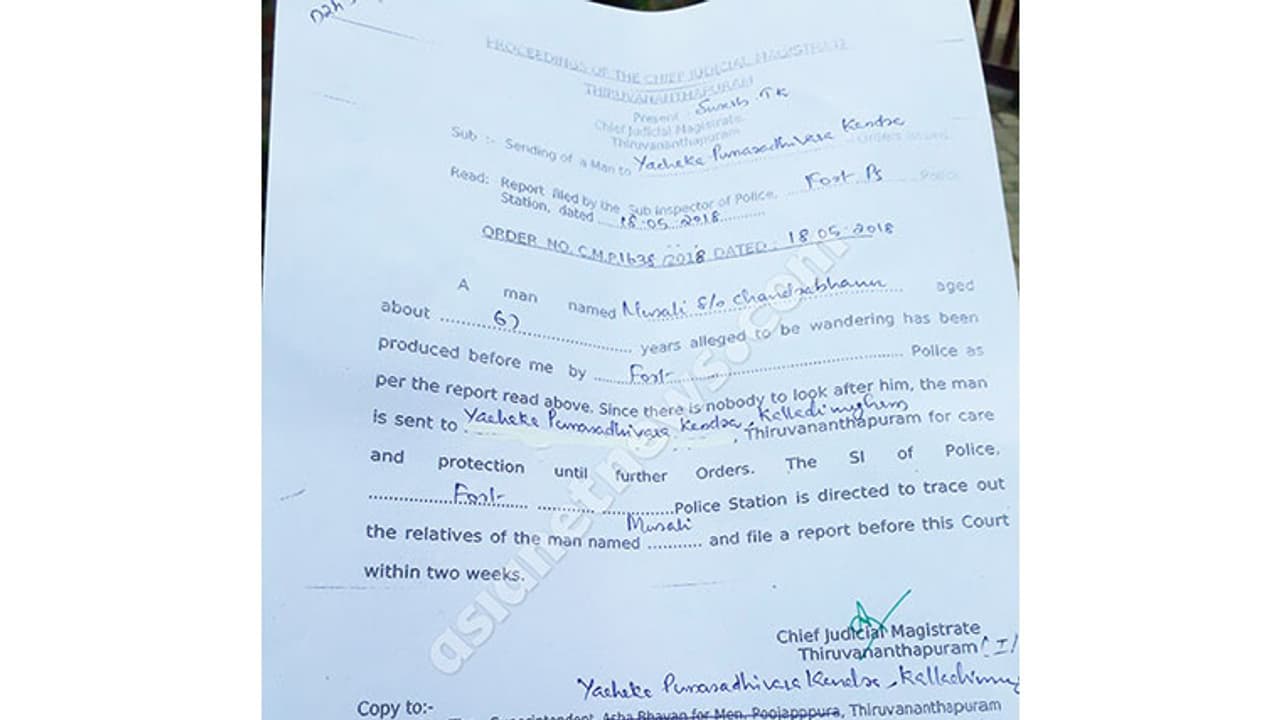 PROCEEDINGS OF THE CHIEF JUDICIAL MAGISTRATE
THIRUVANANTHAPURAM
Present : Suresh. T K
Chief Judicial Magistrate,
Thiruvananthapuram
Sub :- Sending of a Man to Yacheke Punaradhivasa Kendra Orders issued
Read: Report filed by the Sub Inspector of Police, Fort Ps Police
Station, dated 18.05.2018
ORDER NO. C.M.P. /2018 DATED : 18.05.2018
A man named Murali S/o Chandrabhanu aged
about years alleged to be wandering has been
produced before me by Fort Police as
per the report read above. Since there is nobody to look after him, the man
is sent to Yacheke Punaradhivasa Kendra, , Thiruvananthapuram for care
and protection until further Orders. The SI of Police,
Fort Police Station is directed to trace out
the relatives of the man named Murali and file a report before this Court
within two weeks.
Chief Judicial Magistrate
Thiruvananthapuram
Yacheke Punaradhivasa Kendra,
Copy to:-
Superintendent, Asha Bhavan for Men, Poojapppura, Thiruvananthapuram
asianetnews.com